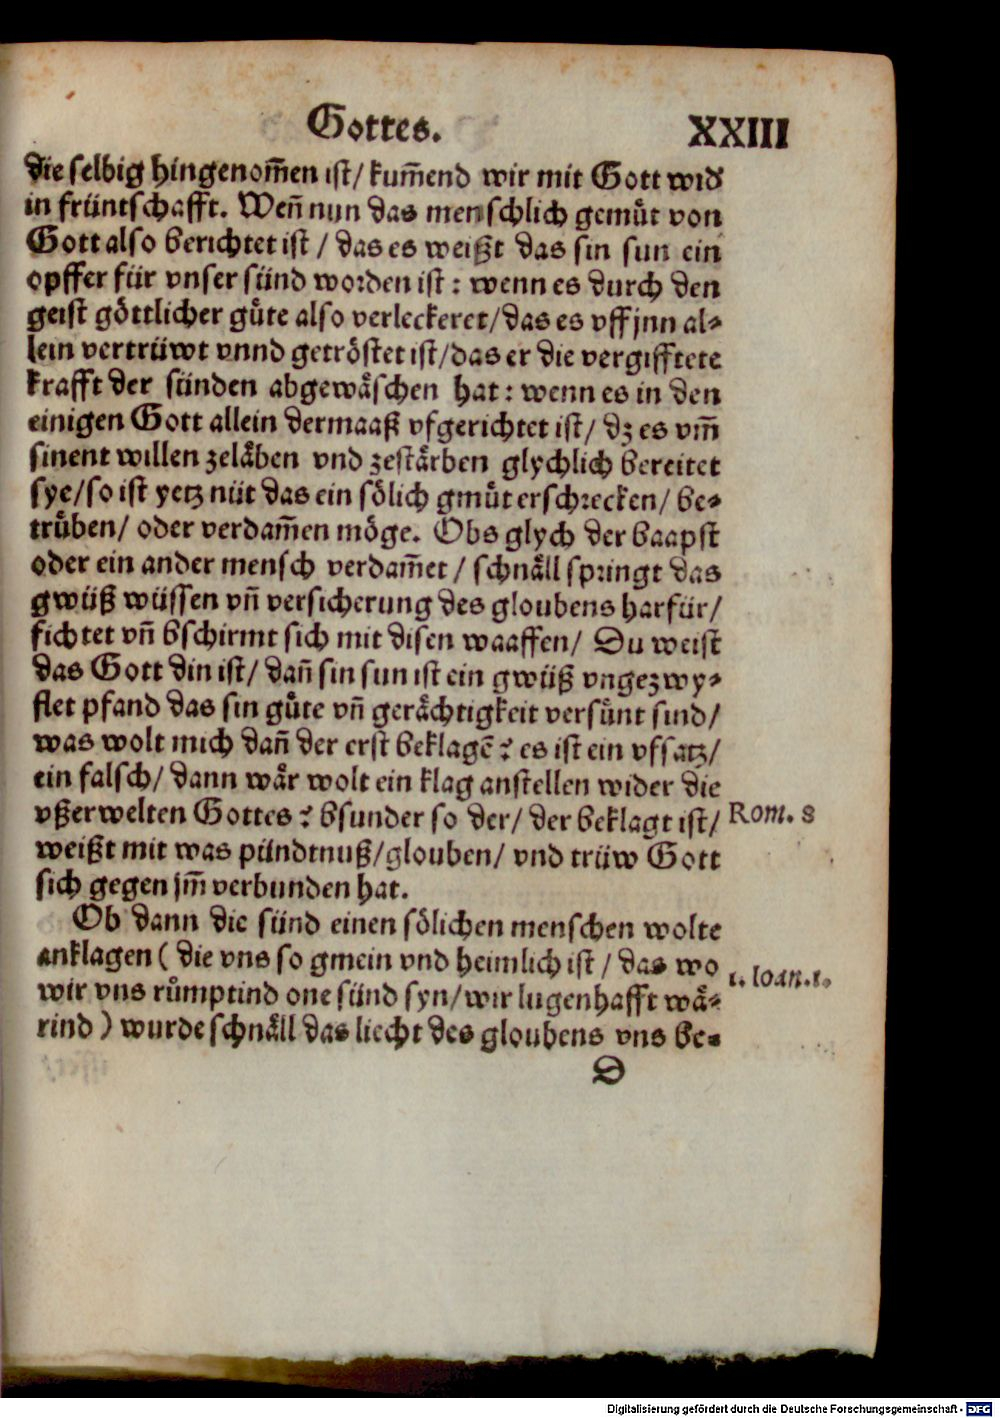 Gottes. XXIII
die selbig hingenom̃en ist/ kum̃end wir mit Gott wid
in früntschafft. Weñ nun das menschlich gemuͤt von
Gott also berichtet ist / das es weißt das sin sun ein
opffer für vnser sünd worden ist : wenn es durch den
geist göttlicher guͤte also verleckeret/das es vff jnn al⸗
lein vertrüwt vnnd getröstet ist/das er die vergifftete
krafft der sünden abgewaͤschen hat : wenn es in den
einigen Gott allein dermaaß vfgerichtet ist/ dz es vm̃
sinent willen zelaͤben vnd zestaͤrben glychlich bereitet
sye/so ist yetz nüt das ein soͤlich gmuͤt erschrecken/ be⸗
truͤben/ oder verdam̃en moͤge. Obs glych der baapst
oder ein ander mensch verdam̃et / schnaͤll springt das
gwüß wüssen vñ versicherung des gloubens harfür/
fichtet vñ bschirmt sich mit disen waaffen/ Du weist
das Gott din ist/ dañ sin sun ist ein gwüß vngezwy⸗
flet pfand das sin guͤte vñ geraͤchtigkeit versuͤnt sind/
was wolt mich dañ der erst beklagē? es ist ein vfsatz/
ein falsch/ dann waͤr wolt ein klag anstellen wider die
vßerwelten Gottes? bsunder so der/ der beklagt ist/ Rom. 8
weißt mit was pündtnuß/glouben/ vnd trüw Gott
sich gegen jm̃ verbunden hat.
Ob dann die sünd einen soͤlichen menschen wolte
anklagen ( die vns so gmein vnd heimlich ist / das wo 1. Ioan. 1.
wir vns ruͦmptind one sünd syn/wir lugenhafft waͤ⸗
rind ) wurde schnaͤll das liecht des gloubens vns be⸗
D
Digitalisierung gefördert durch die Deutsche Forschungsgemeinschaft - DFG